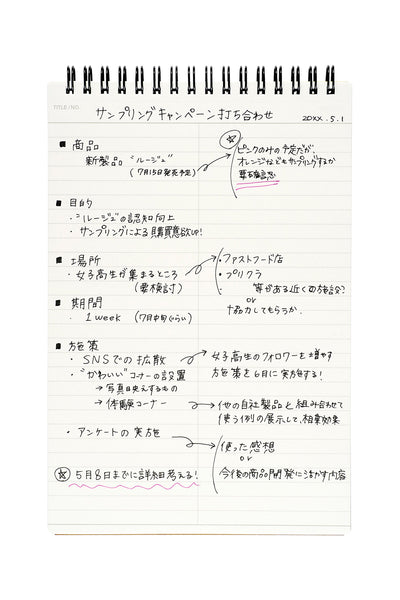 TITLE/NO.
サンプリングキャンペーン打ち合わせ 20XX.5.1
■ 商品
新製品 "ルージュ"
(7月15日発売予定)
☆
ピンクのみの予定だが、
オレンジなどもサンプリングするか
要確認
■ 目的
・"ルージュ"の認知向上
・サンプリングによる購買意欲UP!
■ 場所
・女子高生が集まるところ
(要検討)
・ファストフード店
・プリクラ
・ 等がある近くの施設?
or
協力してもらうか、
■ 期間
・1week (7月中旬くらい)
■ 方策
・SNSでの拡散
女子高生のフォロワーを増やす
方策を6月に実施する!
・"かわいい"コーナーの設置
→写真映えするもの
→体験コーナー
他の自社製品と組み合わせて
使う例の展示して、相乗効果
・アンケートの実施
使った感想
or
今後の商品開発に活かす内容
☆ 5月8日までに詳細考える!